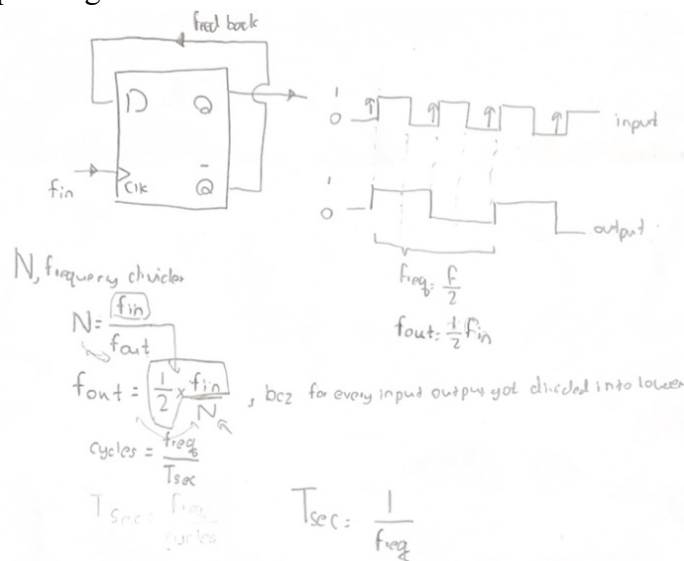 feed back
D Q
Clk Q̄
fin
1
0
input
1
0
output
freq = f/2
fout = 1/2 fin
N, frequency divider
N = fin/fout
fout = 1/2 × fin/N , bcz for every input output got divided into lower
cycles = freq/Tsec
Tsec = freq/cycles
Tsec = 1/freq